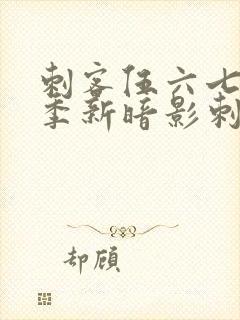 刺客伍六七
季新暗影刺
却顾